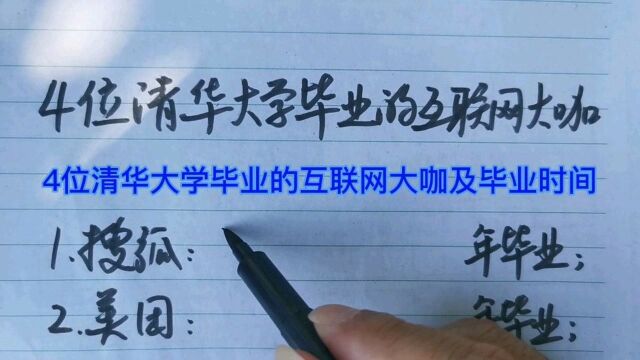 4位清华大学毕业的互联网大咖
4位清华大学毕业的互联网大咖及毕业时间
1.搜狐: 年毕业;
2.美团: 年毕业;